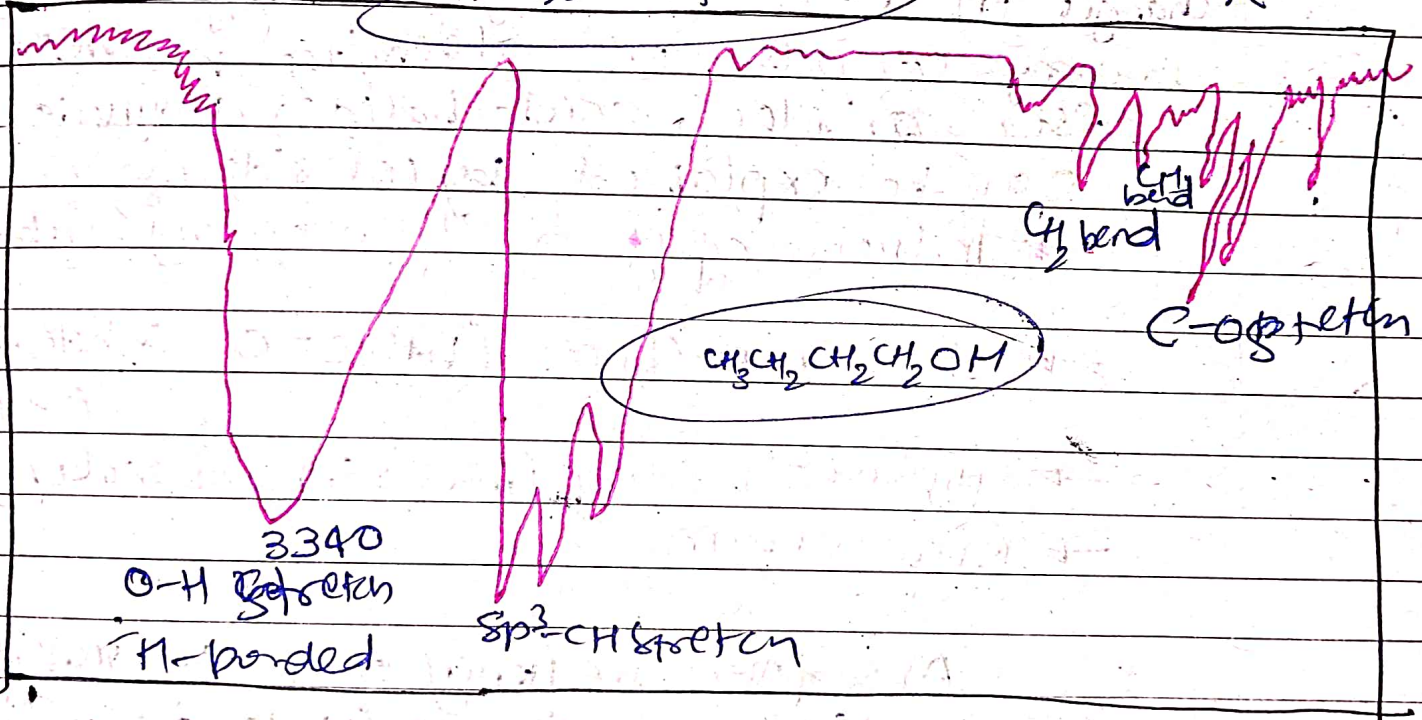 CH₂ bend
CH₃ bend
C-O stretch
CH₃CH₂CH₂CH₂OH
3340
O-H stretch
H-bonded
Sp³-CH stretch